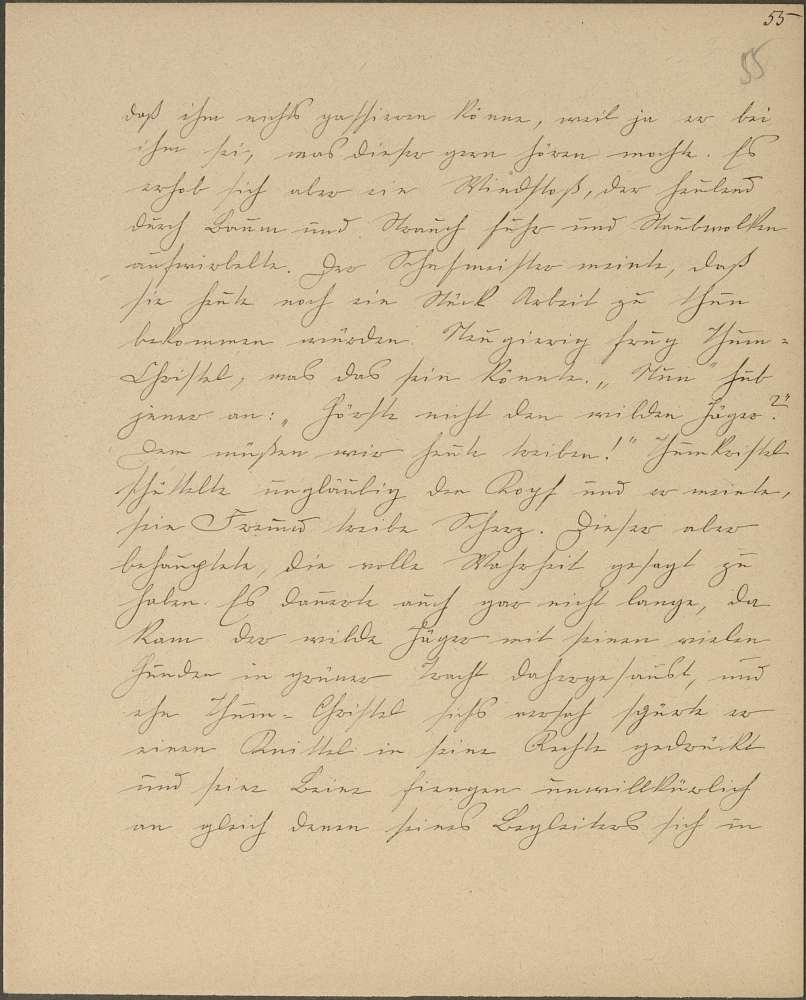 55
55
daß ihm nichts passieren könne, weil ja er bei
ihm sei, was dieser gern hören mochte. Es
erhob sich aber ein Windstoß, der heulend
durch Baum und Strauch fuhr und Staubwolken
aufwirbelte. Der Schafmeister meinte, daß
sie heute noch ein Stück Arbeit zu thun
bekommen würden. Neugierig frug Thum-
Christel, was das sein könnte. „Nun" hub
jener an: „Hörste nicht den wilden Jäger?"
Dem müßen wir heute treiben!" Thumkristel
schüttelte ungläubig den Kopf und er meinte,
sein Freund treibe Scherz. Dieser aber
behauptete, die volle Wahrheit gesagt zu
haben. Es dauerte auch gar nicht lange, da
kam der wilde Jäger mit seinen vielen
Hunden in grüner Tracht dahergesaust, und
ehe Thum-Christel sichs versah spürte er
einen Knittel in seine Rechte gedrückt
und seine Beine fiengen unwillkürlich
an gleich denen seines Begleiters sich in